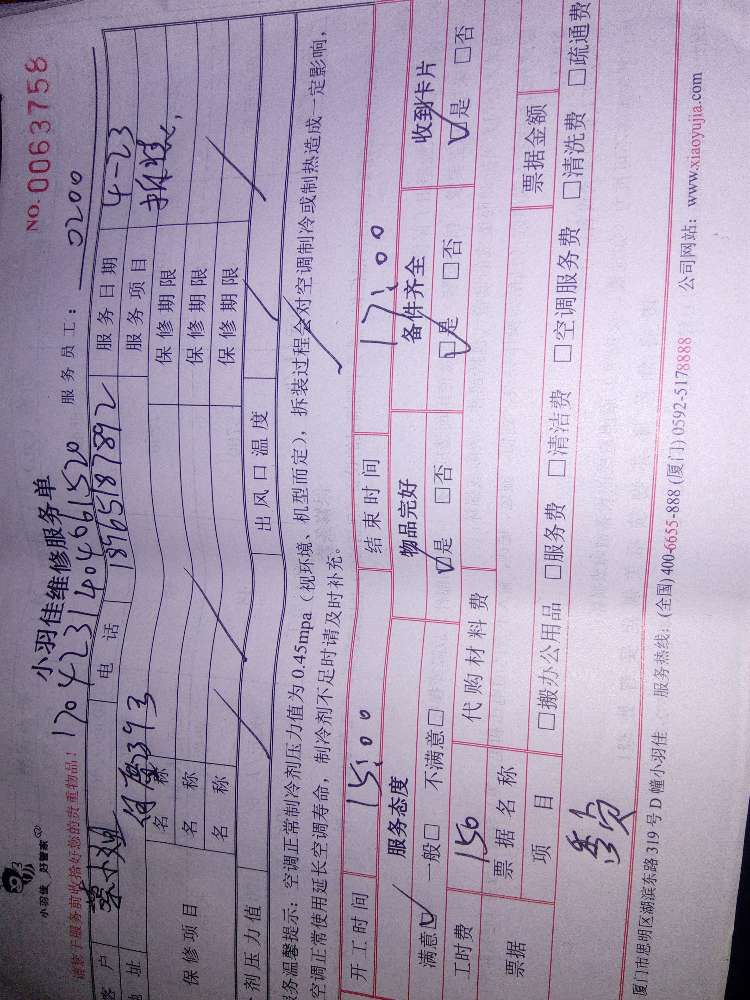 小羽佳 好管家
小羽佳维修服务单
NO. 0063758
请您于服务前收拾好您的贵重物品！ 170423140461520 服务员工： 0200
客 户 蔡小姐 电 话 18965187892 服务日期 4-23
地 址 393 服务项目
保修项目 名 称 保修期限
名 称 保修期限
名 称 保修期限
剂压力值 出风口温度
务温馨提示：空调正常制冷剂压力值为0.45mpa（视环境、机型而定），拆装过程会对空调制冷或制热造成一定影响，
空调正常使用延长空调寿命，制冷剂不足时请及时补充。
开工时间 15:00 结束时间 17:00
服务态度 物品完好 备件齐全 收到卡片
满意☑ 一般□ 不满意□ ☑是 □否 ☑是 □否 ☑是 □否
工时费 150 代购材料费
票据 票据名称 票据金额
项 目 □搬办公用品 □服务费 □清洁费 □空调服务费 □清洗费 □疏通费
厦门市思明区湖滨东路319号D幢小羽佳 服务热线：(全国) 400-6655-888 (厦门) 0592-5178888 公司网站：www.xiaoyujia.com